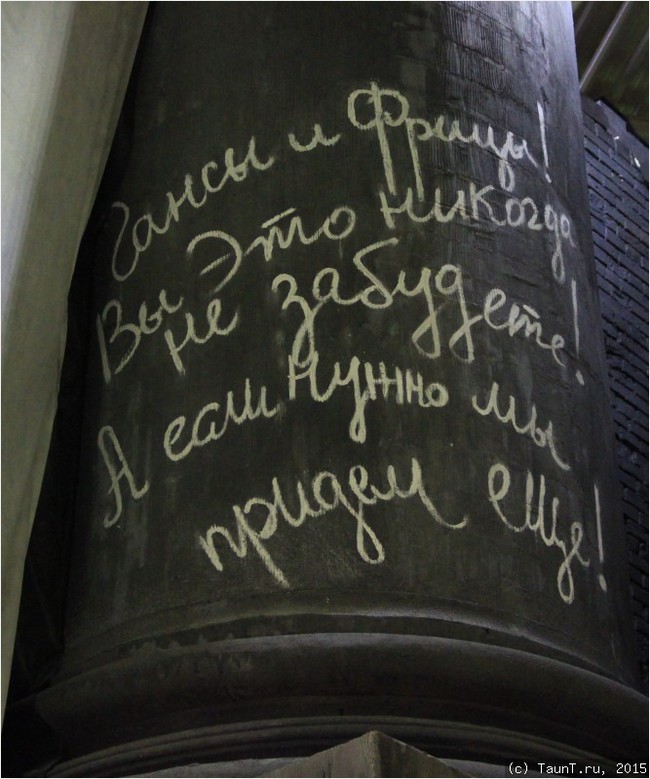 Гансы и Фрицы!
Вы это никогда
не забудете!
А если нужно мы
придем еще!
(c) TaunT.ru, 2015